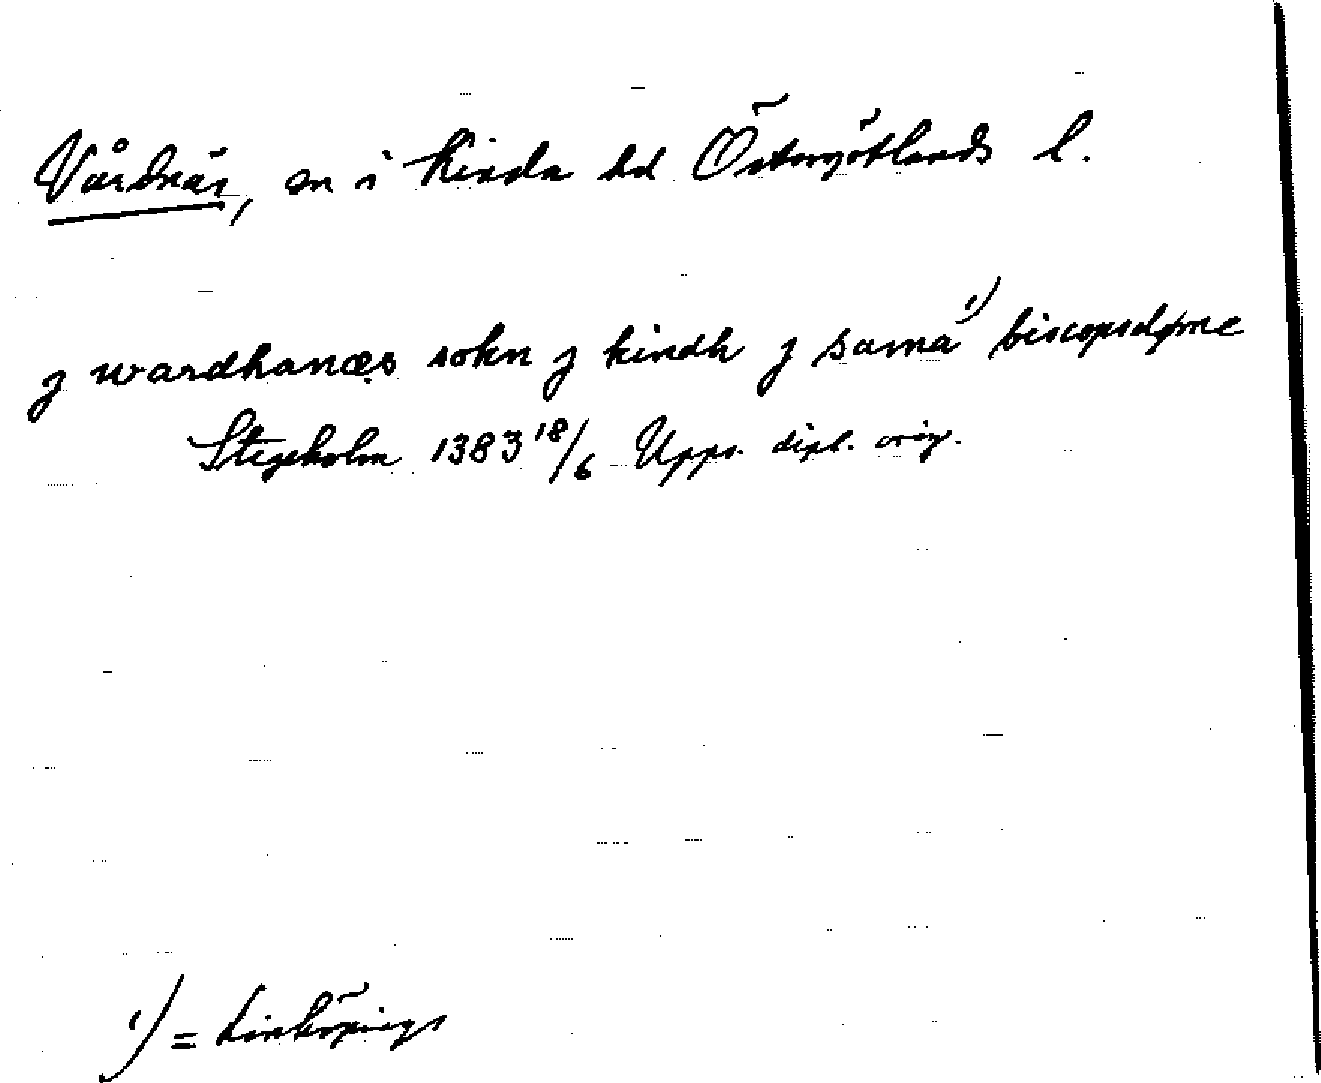 Vårdnäs, sn i Kinda hd Östergötlands l.
j wardhanæs sokn j kindh j sama ¹) biscopsdøme
Stegeholm 1383 18/6 Upps. dipl. orig.
¹) = Linköpings